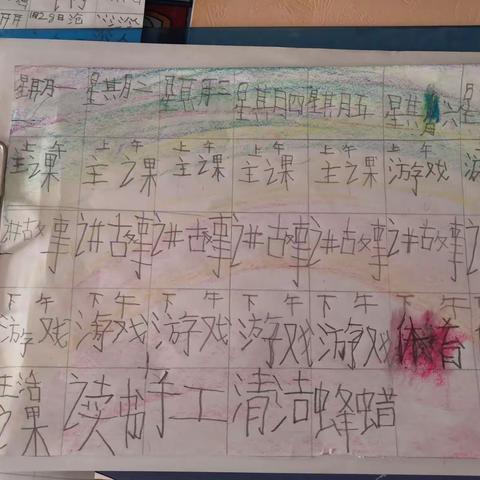 星期一 星期二 星期三 星期四 星期五 星期六 星
上午 上午 上午 上午 上午 上午
主课 主课 主课 主课 主课 游戏 游
讲故事 讲故事 讲故事 讲故事 讲故事 讲故事
下午 下午 下午 下午 下午 下午 下
游戏 游戏 游戏 游戏 游戏 体育
生活
课 读书 手工 清洁 蜂蜡